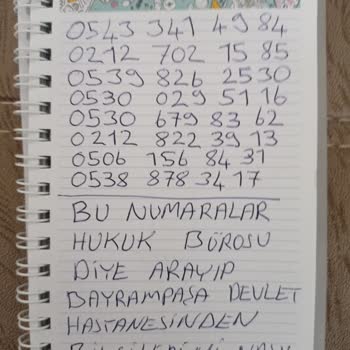 0543 341 49 84
0212 702 15 85
0539 826 2530
0530 029 51 16
0530 679 83 62
0212 822 39 13
0506 156 84 31
0538 878 34 17
BU NUMARALAR
HUKUK BÜROSU
DİYE ARAYIP
BAYRAMPAŞA DEVLET
HASTANESİNDEN